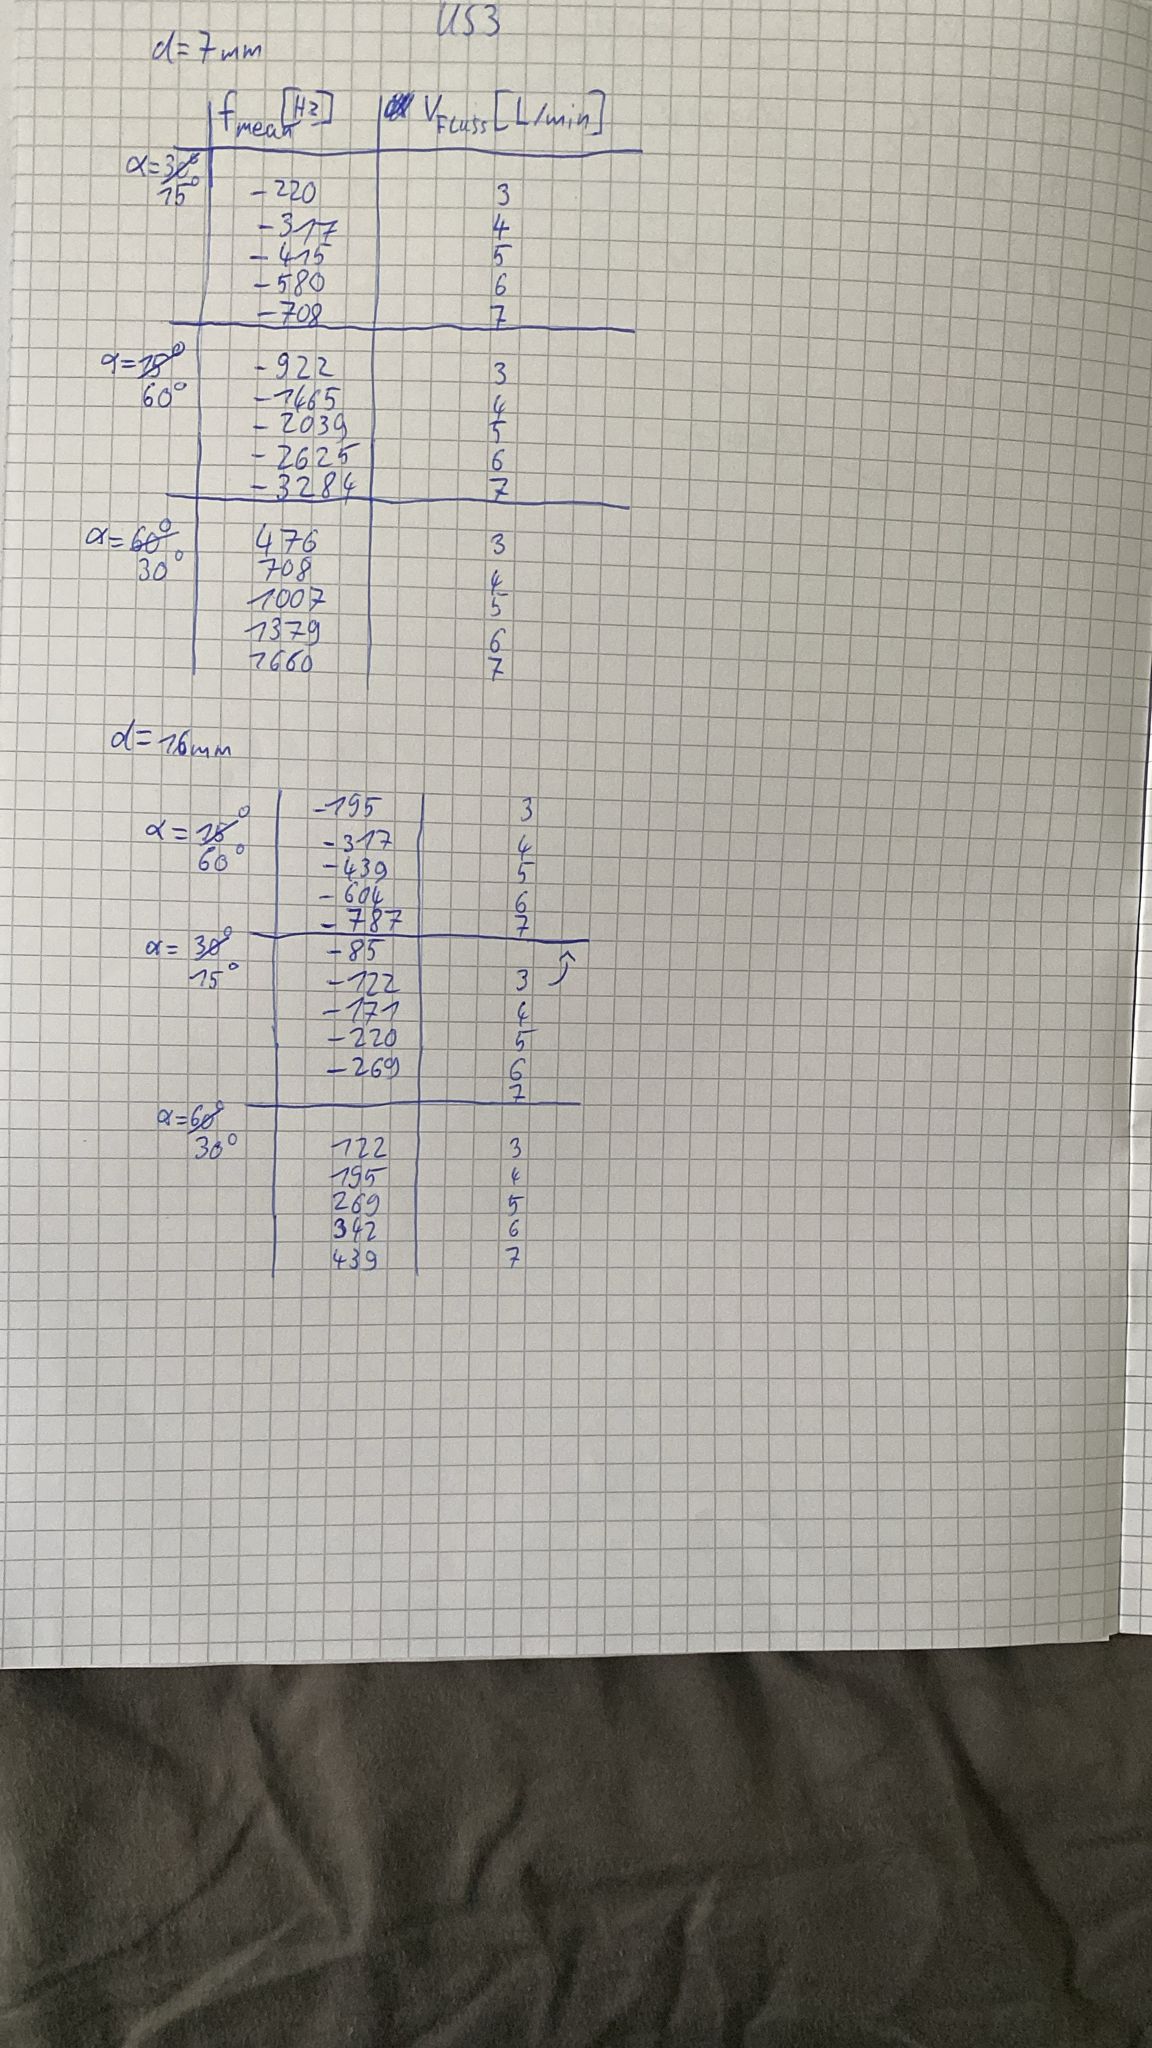 US3
d=7mm
f_mean [Hz] V_Fluss [L/min]
α=30°
15° -220 3
-317 4
-415 5
-580 6
-708 7
α=15° -922 3
60° -1465 4
-2039 5
-2625 6
-3284 7
α=60° 476 3
30° 708 4
1007 5
1379 6
1660 7
d=16mm
-195 3
α=15° -317 4
60° -439 5
-604 6
-787 7
α=30° -85
15° -122 3
-171 4
-220 5
-269 6
7
α=60°
30° 122 3
195 4
269 5
342 6
439 7